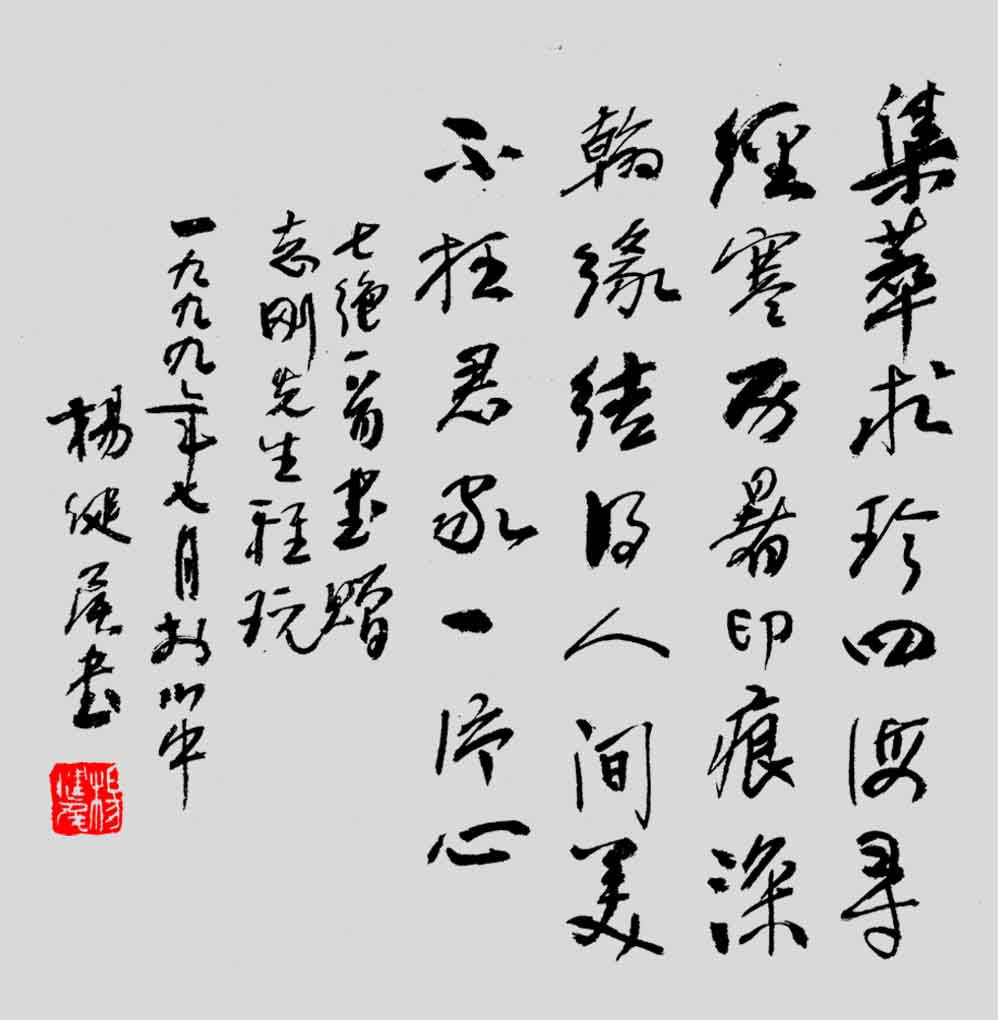 集萃求珍四海寻
經寒历暑印痕深
翰缘结得人间美
不枉君家一片心
七绝一首書贈
志刚先生雅玩
一九九九年七月於川中
楊健書